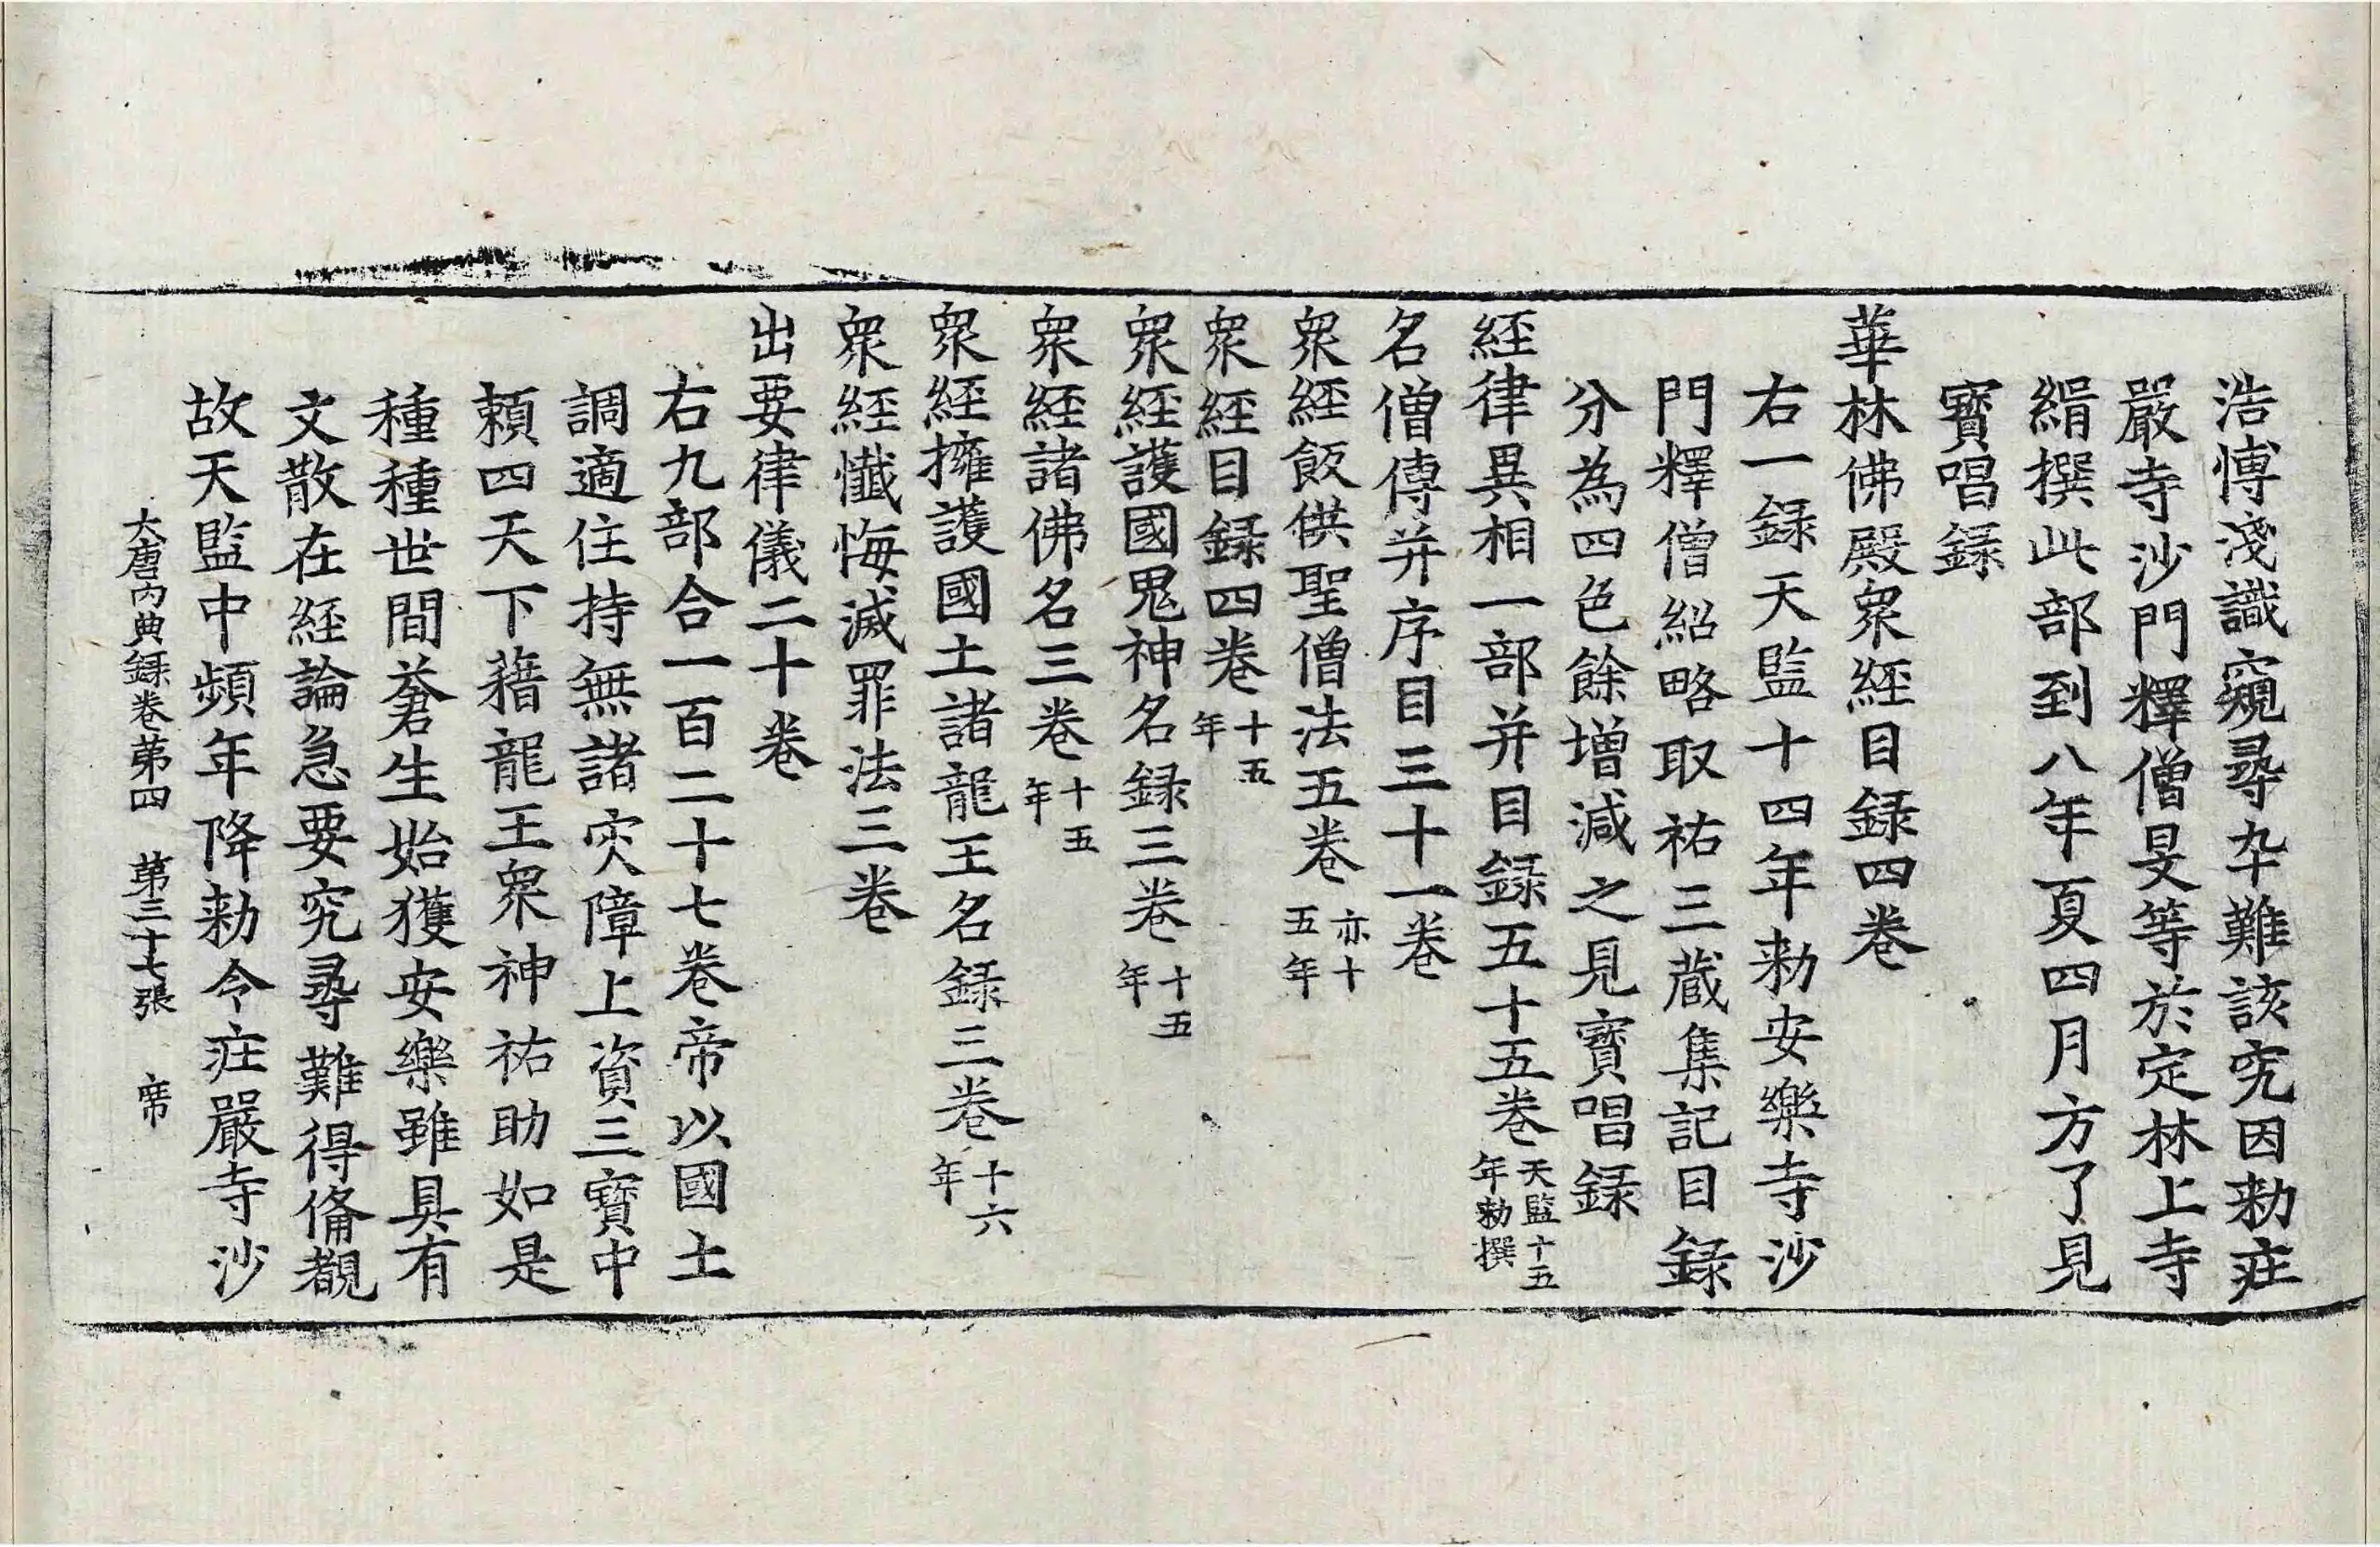 浩博淺識窺尋卒難該究因勑莊
嚴寺沙門釋僧旻等於定林上寺
緝撰此部到八年夏四月方了見
寶唱錄
華林佛殿衆經目錄四卷
右一錄天監十四年勑安樂寺沙
門釋僧紹略取祐三藏集記目錄
分為四色餘增減之見寶唱錄
經律異相一部并目錄五十五卷天監十五年勑撰
名僧傳并序目三十一卷
衆經飯供聖僧法五卷亦十五年
衆經目錄四卷十五年
衆經護國鬼神名錄三卷十五年
衆經諸佛名三卷十五年
衆經擁護國土諸龍王名錄三卷十六年
衆經懺悔滅罪法三卷
出要律儀二十卷
右九部合一百二十七卷帝以國土
調適住持無諸灾障上資三寶中
賴四天下藉龍王衆神祐助如是
種種世間蒼生始獲安樂雖具有
文散在經論急要究尋難得備覩
故天監中頻年降勑令莊嚴寺沙
大唐內典錄卷第四 第三十七張 席